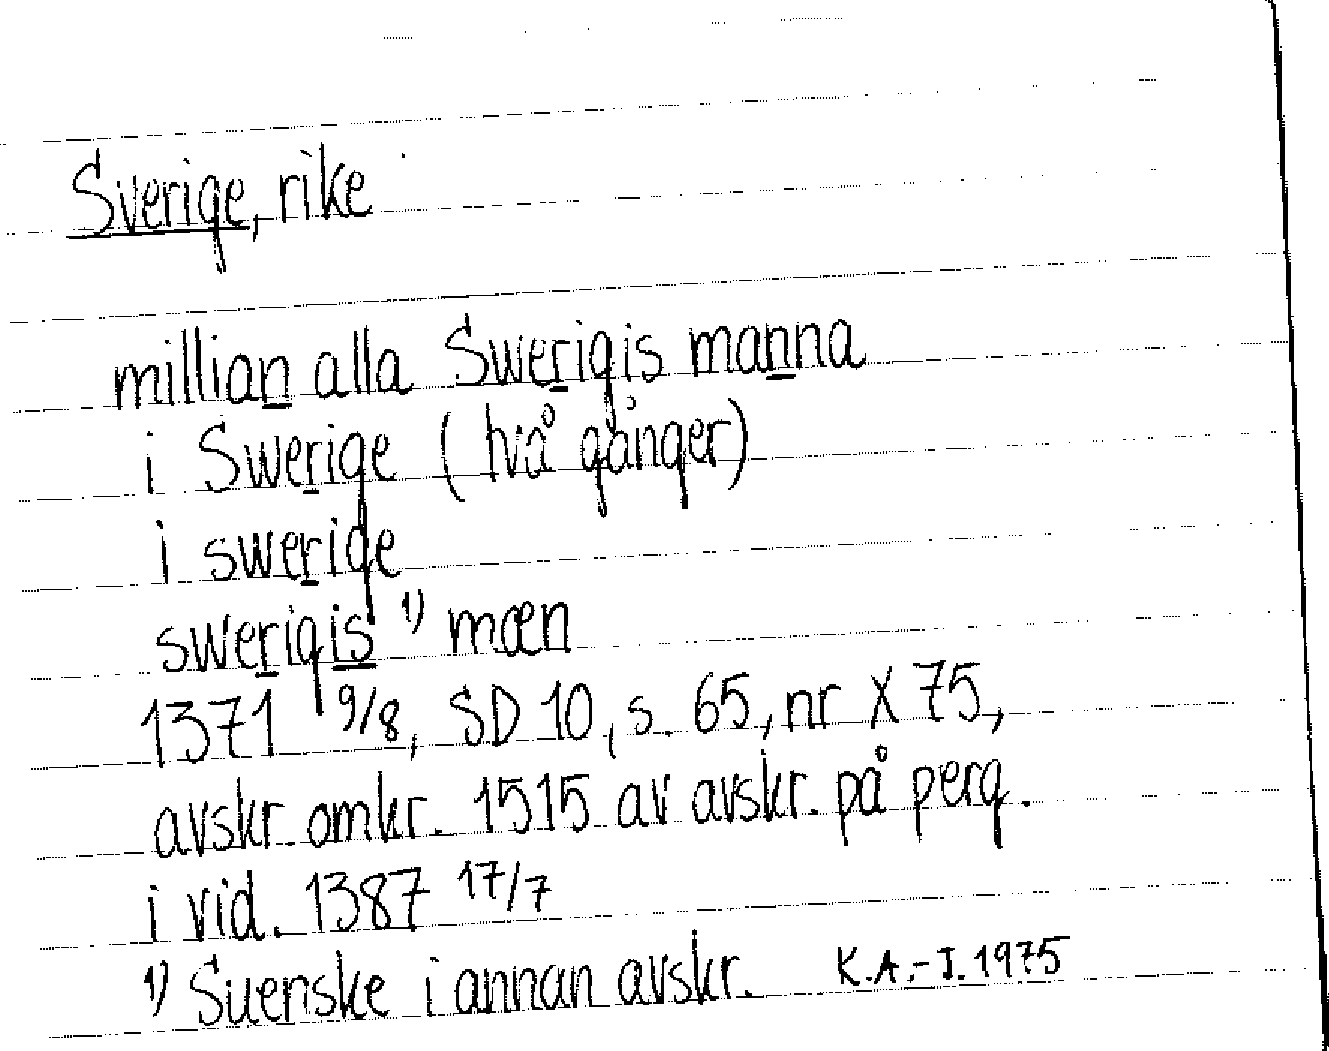 Sverige, rike
millian alla Swerigis manna
i Swerige (två gånger)
i swerige
swerigis 1) mæn
1371 9/8, SD 10, s. 65, nr X 75,
avskr. omkr. 1515 av avskr. på perg.
i vid. 1387 17/7
1) Suenske i annan avskr. K.A.-J. 1975